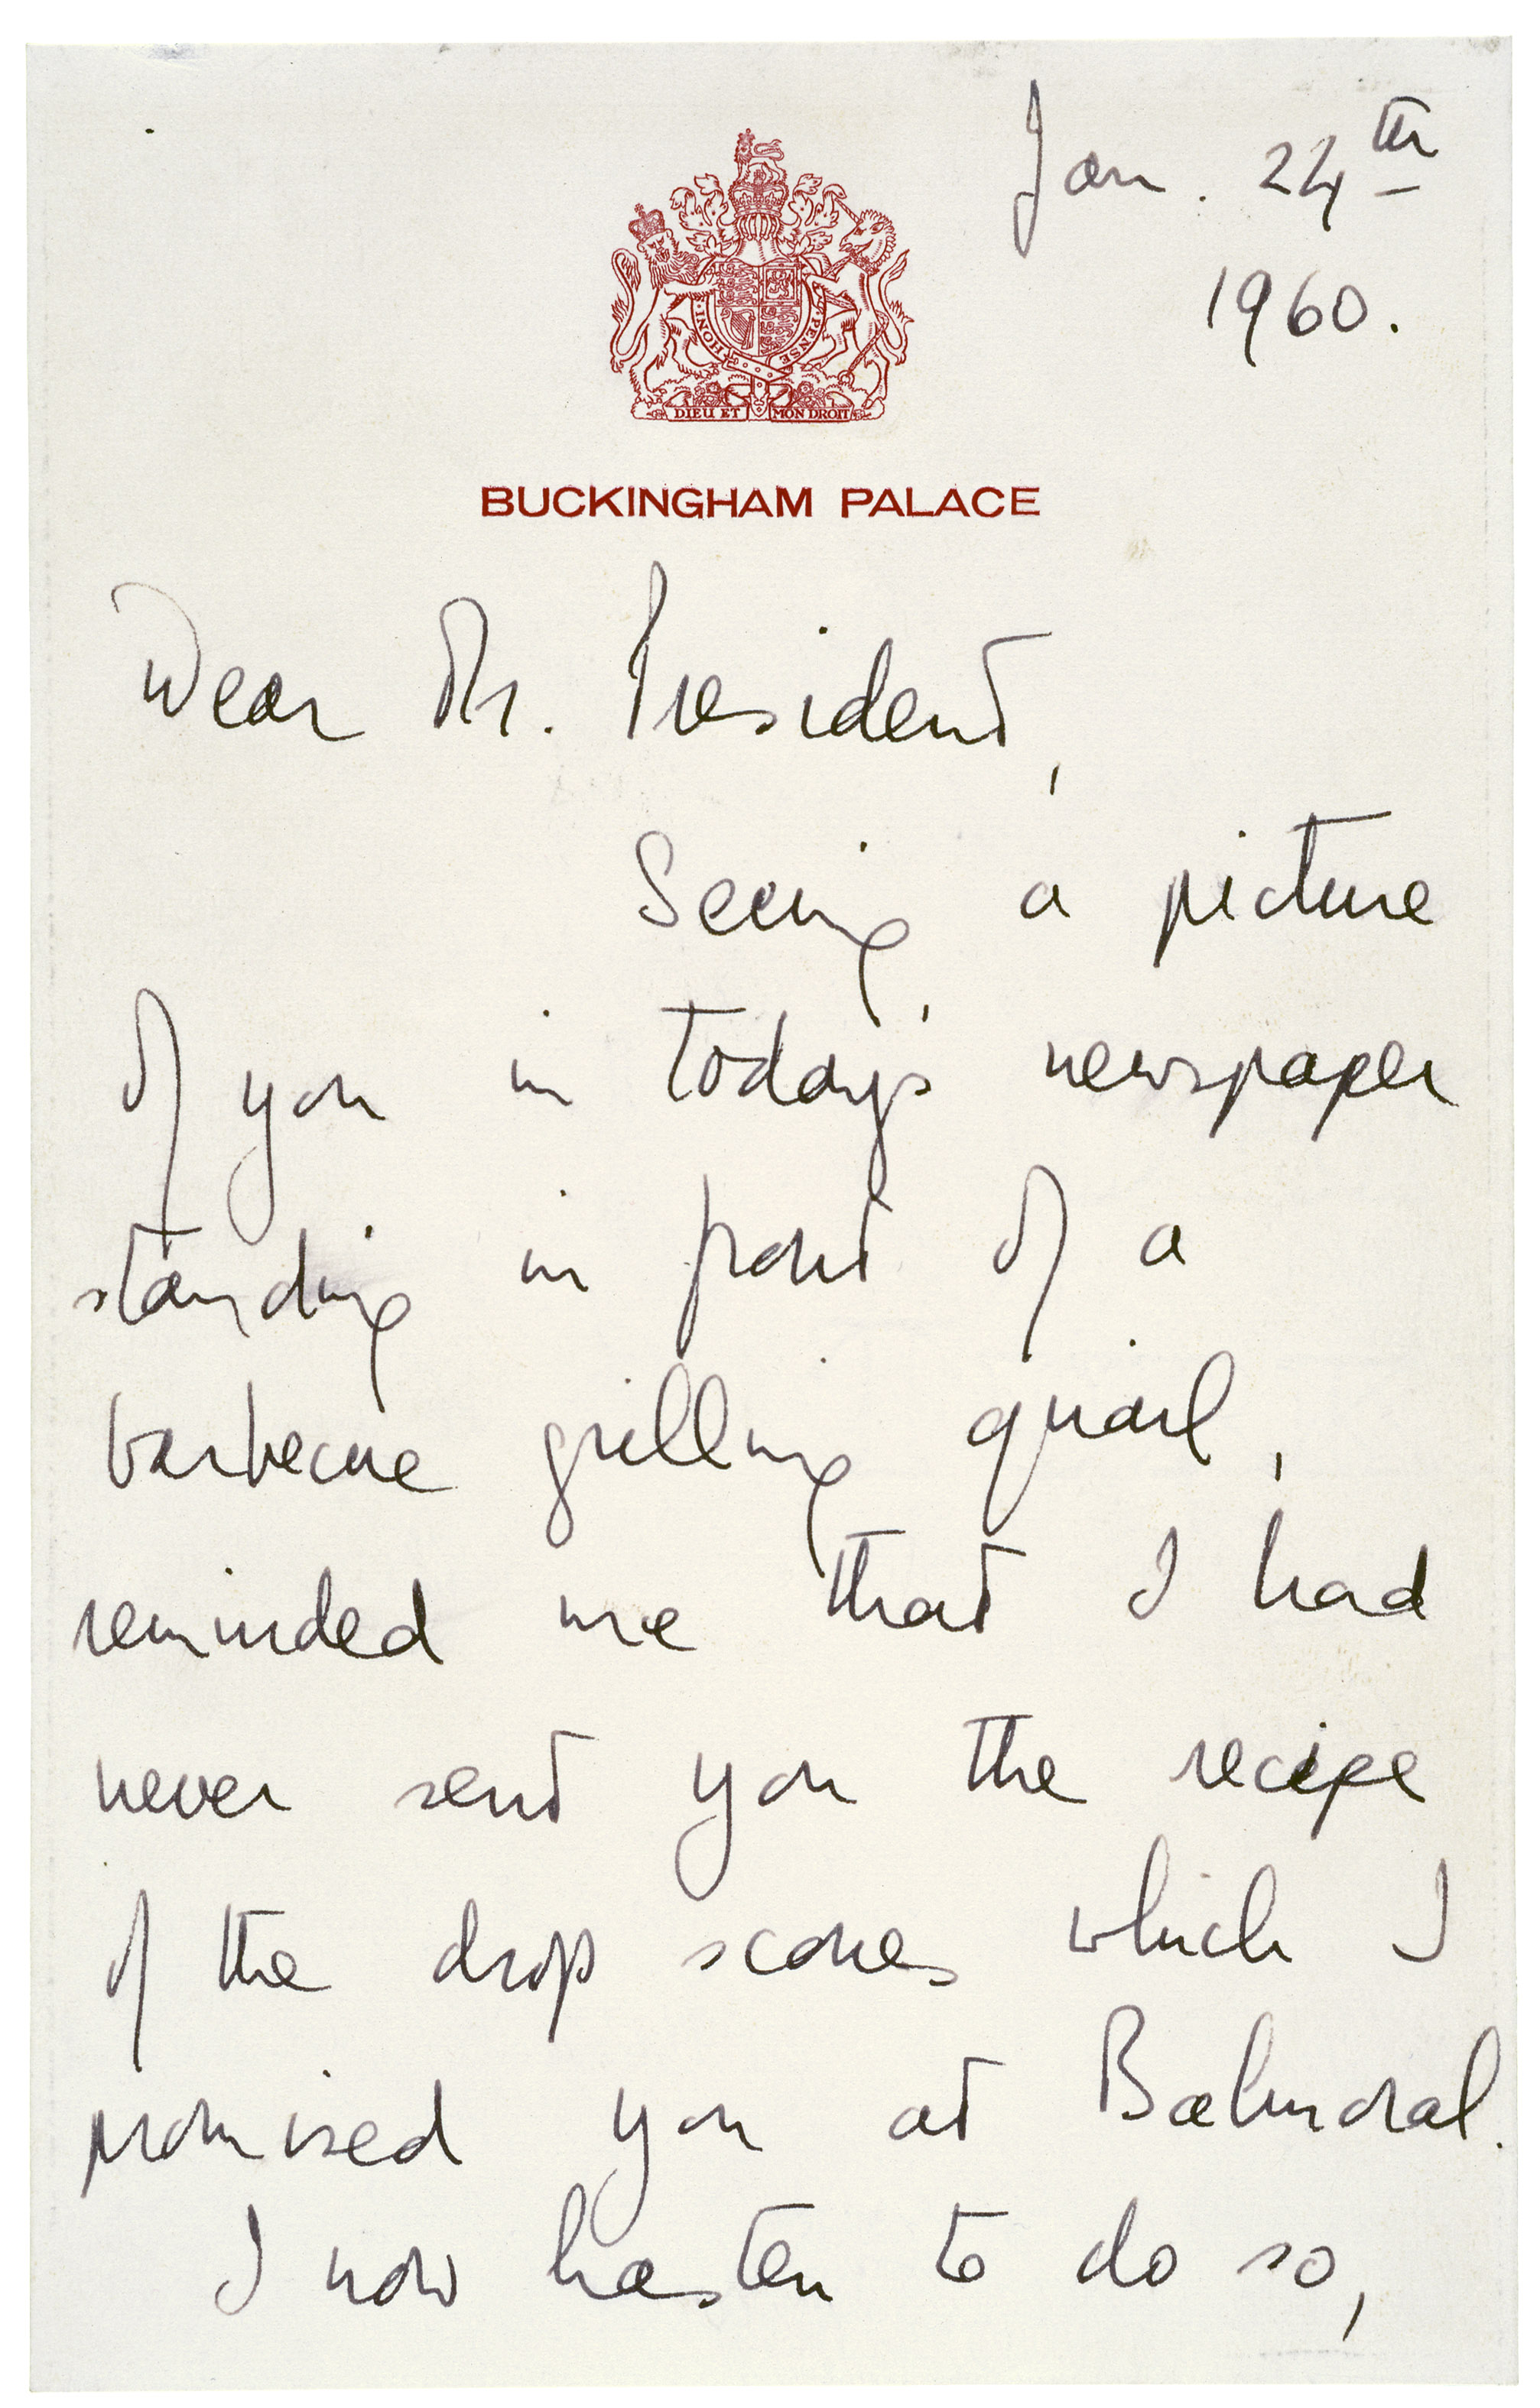 Jan. 24th
1960.
HONI
PENSE
DIEU ET MON DROIT
BUCKINGHAM PALACE
Dear Mr. President,
Seeing a picture
of you in today's newspaper
standing in front of a
barbecue grilling quail,
reminded me that I had
never sent you the recipe
of the drop scones which I
promised you at Balmoral.
I now hasten to do so,